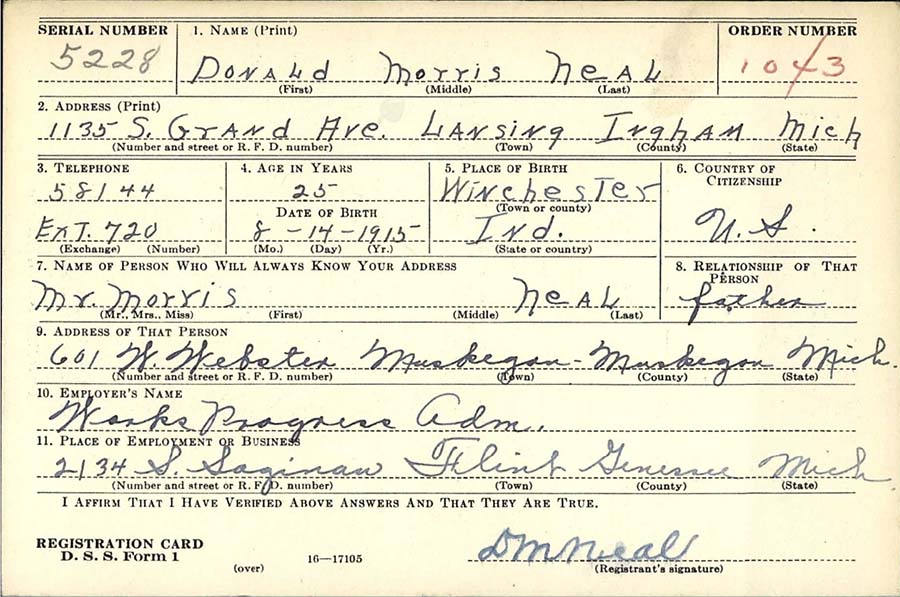 SERIAL NUMBER 1. NAME (Print) ORDER NUMBER
5228 Donald Morris Neal 1043
(First) (Middle) (Last)
2. ADDRESS (Print)
1135 S. Grand Ave. Lansing Ingham Mich
(Number and street or R. F. D. number) (Town) (County) (State)
3. TELEPHONE 4. AGE IN YEARS 5. PLACE OF BIRTH 6. COUNTRY OF CITIZENSHIP
58144 25 Winchester
DATE OF BIRTH (Town or county)
Ext. 720 8-14-1915 Ind. U.S.
(Exchange) (Number) (Mo.) (Day) (Yr.) (State or country)
7. NAME OF PERSON WHO WILL ALWAYS KNOW YOUR ADDRESS 8. RELATIONSHIP OF THAT PERSON
Mr. Morris Neal father
(Mr., Mrs., Miss) (First) (Middle) (Last)
9. ADDRESS OF THAT PERSON
601 W. Webster Muskegon - Muskegon Mich.
(Number and street or R. F. D. number) (Town) (County) (State)
10. EMPLOYER'S NAME
Works Progress Adm.
11. PLACE OF EMPLOYMENT OR BUSINESS
2134 S. Saginaw Flint Genessee Mich
(Number and street or R. F. D. number) (Town) (County) (State)
I AFFIRM THAT I HAVE VERIFIED ABOVE ANSWERS AND THAT THEY ARE TRUE.
REGISTRATION CARD
D. S. S. Form 1 16—17105 DM Neal
(over) (Registrant's signature)